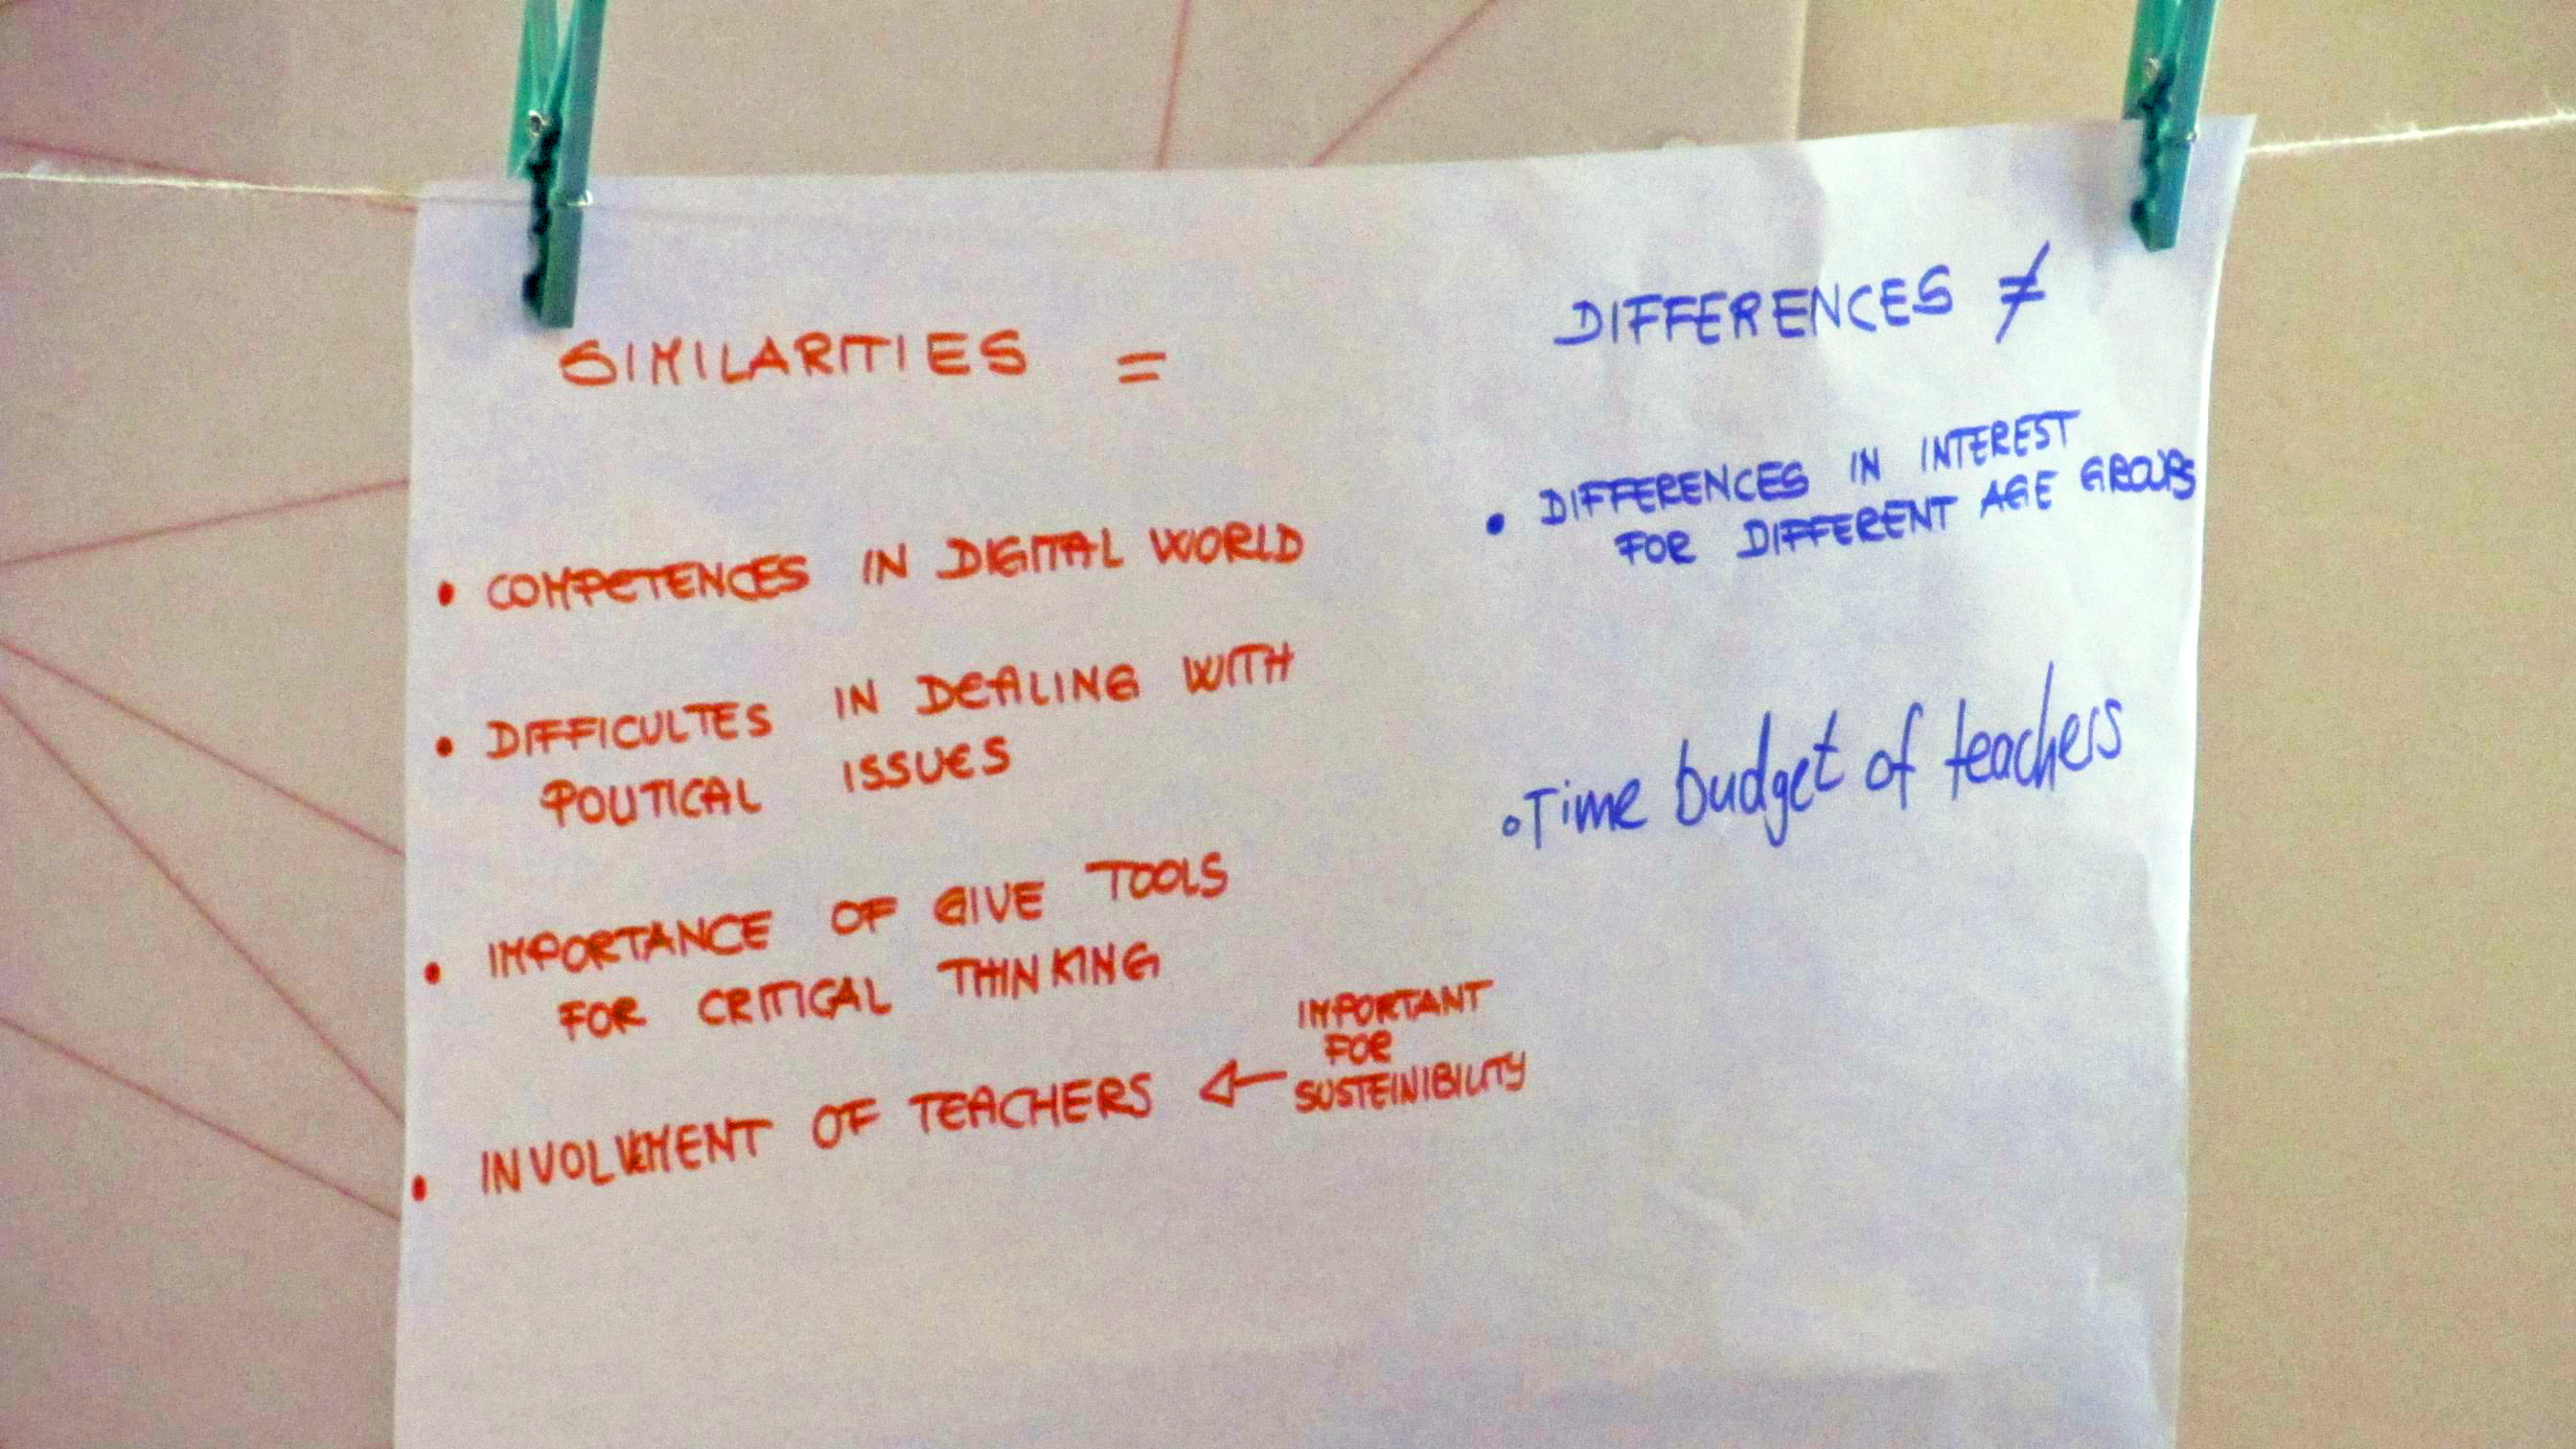 SIMILARITIES =
• COMPETENCES IN DIGITAL WORLD
• DIFFICULTES IN DEALING WITH
POLITICAL ISSUES
• IMPORTANCE OF GIVE TOOLS
FOR CRITICAL THINKING
• INVOLVEMENT OF TEACHERS ←
IMPORTANT
FOR
SUSTEINIBILITY
DIFFERENCES ≠
• DIFFERENCES IN INTEREST
FOR DIFFERENT AGE GROUPS
• Time budget of teachers